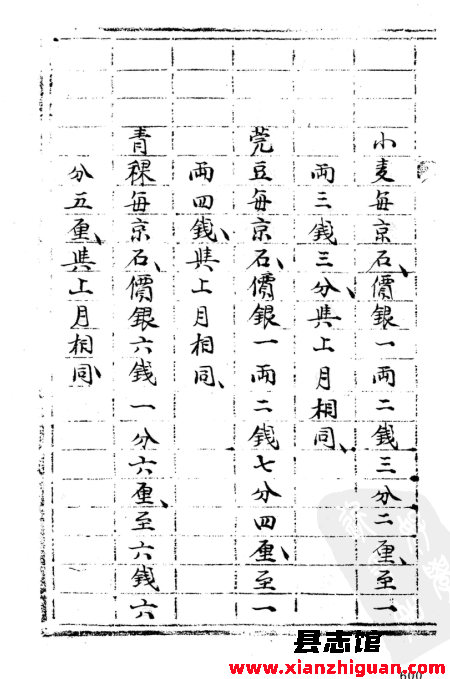 小麦每京石、價銀一兩二錢三分二厘、至一
兩三錢三分、與上月相同、
莞豆每京石、價銀一兩二錢七分四厘、至一
兩四錢、與上月相同、
青稞每京石、價銀六錢一分六厘、至六錢六
分五厘、與上月相同、
县志馆
www.xianzhiguan.com
600